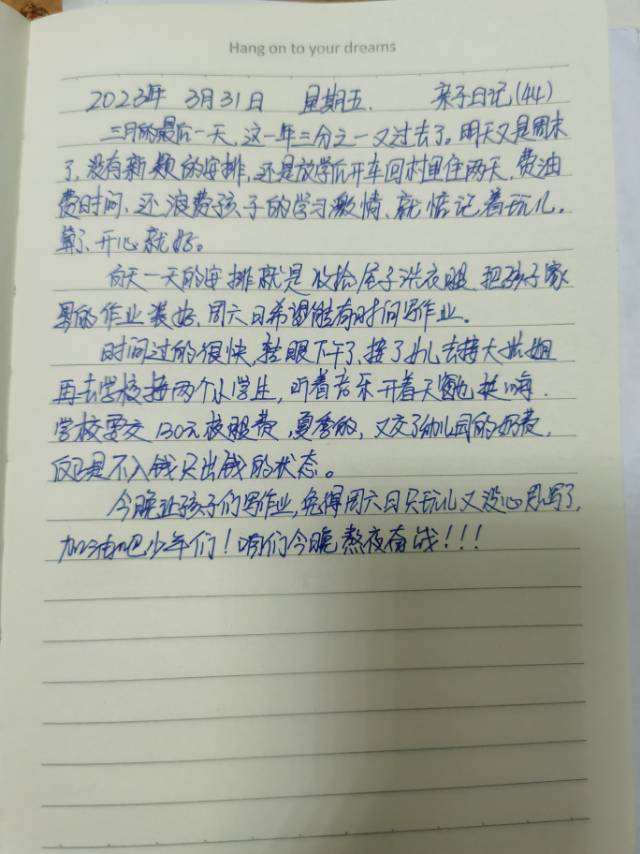 Hang on to your dreams
2023年 3月31日 星期五. 亲子日记(44)
三月的最后一天,这一年三分之一又过去了。明天又是周末
了,没有新颖的安排,还是放学后开车回村里住两天,费油
费时间,还浪费孩子的学习激情,就惦记着玩儿。
算了,开心就好。
白天一天的安排就是收拾屋子洗衣服,把孩子家
里的作业装好,周六日希望能有时间写作业。
时间过的很快,转眼下午了,接了幼儿去接大姑姐
再去学校接两个小学生,听着音乐开着天窗也挺嗨.
学校要交130元校服费,夏季的,又交了幼儿园的奶费,
反正是不入钱只出钱的状态。
今晚让孩子们写作业,免得周六日只玩儿又没心思写了,
加油吧少年们!咱们今晚熬夜奋战!!!